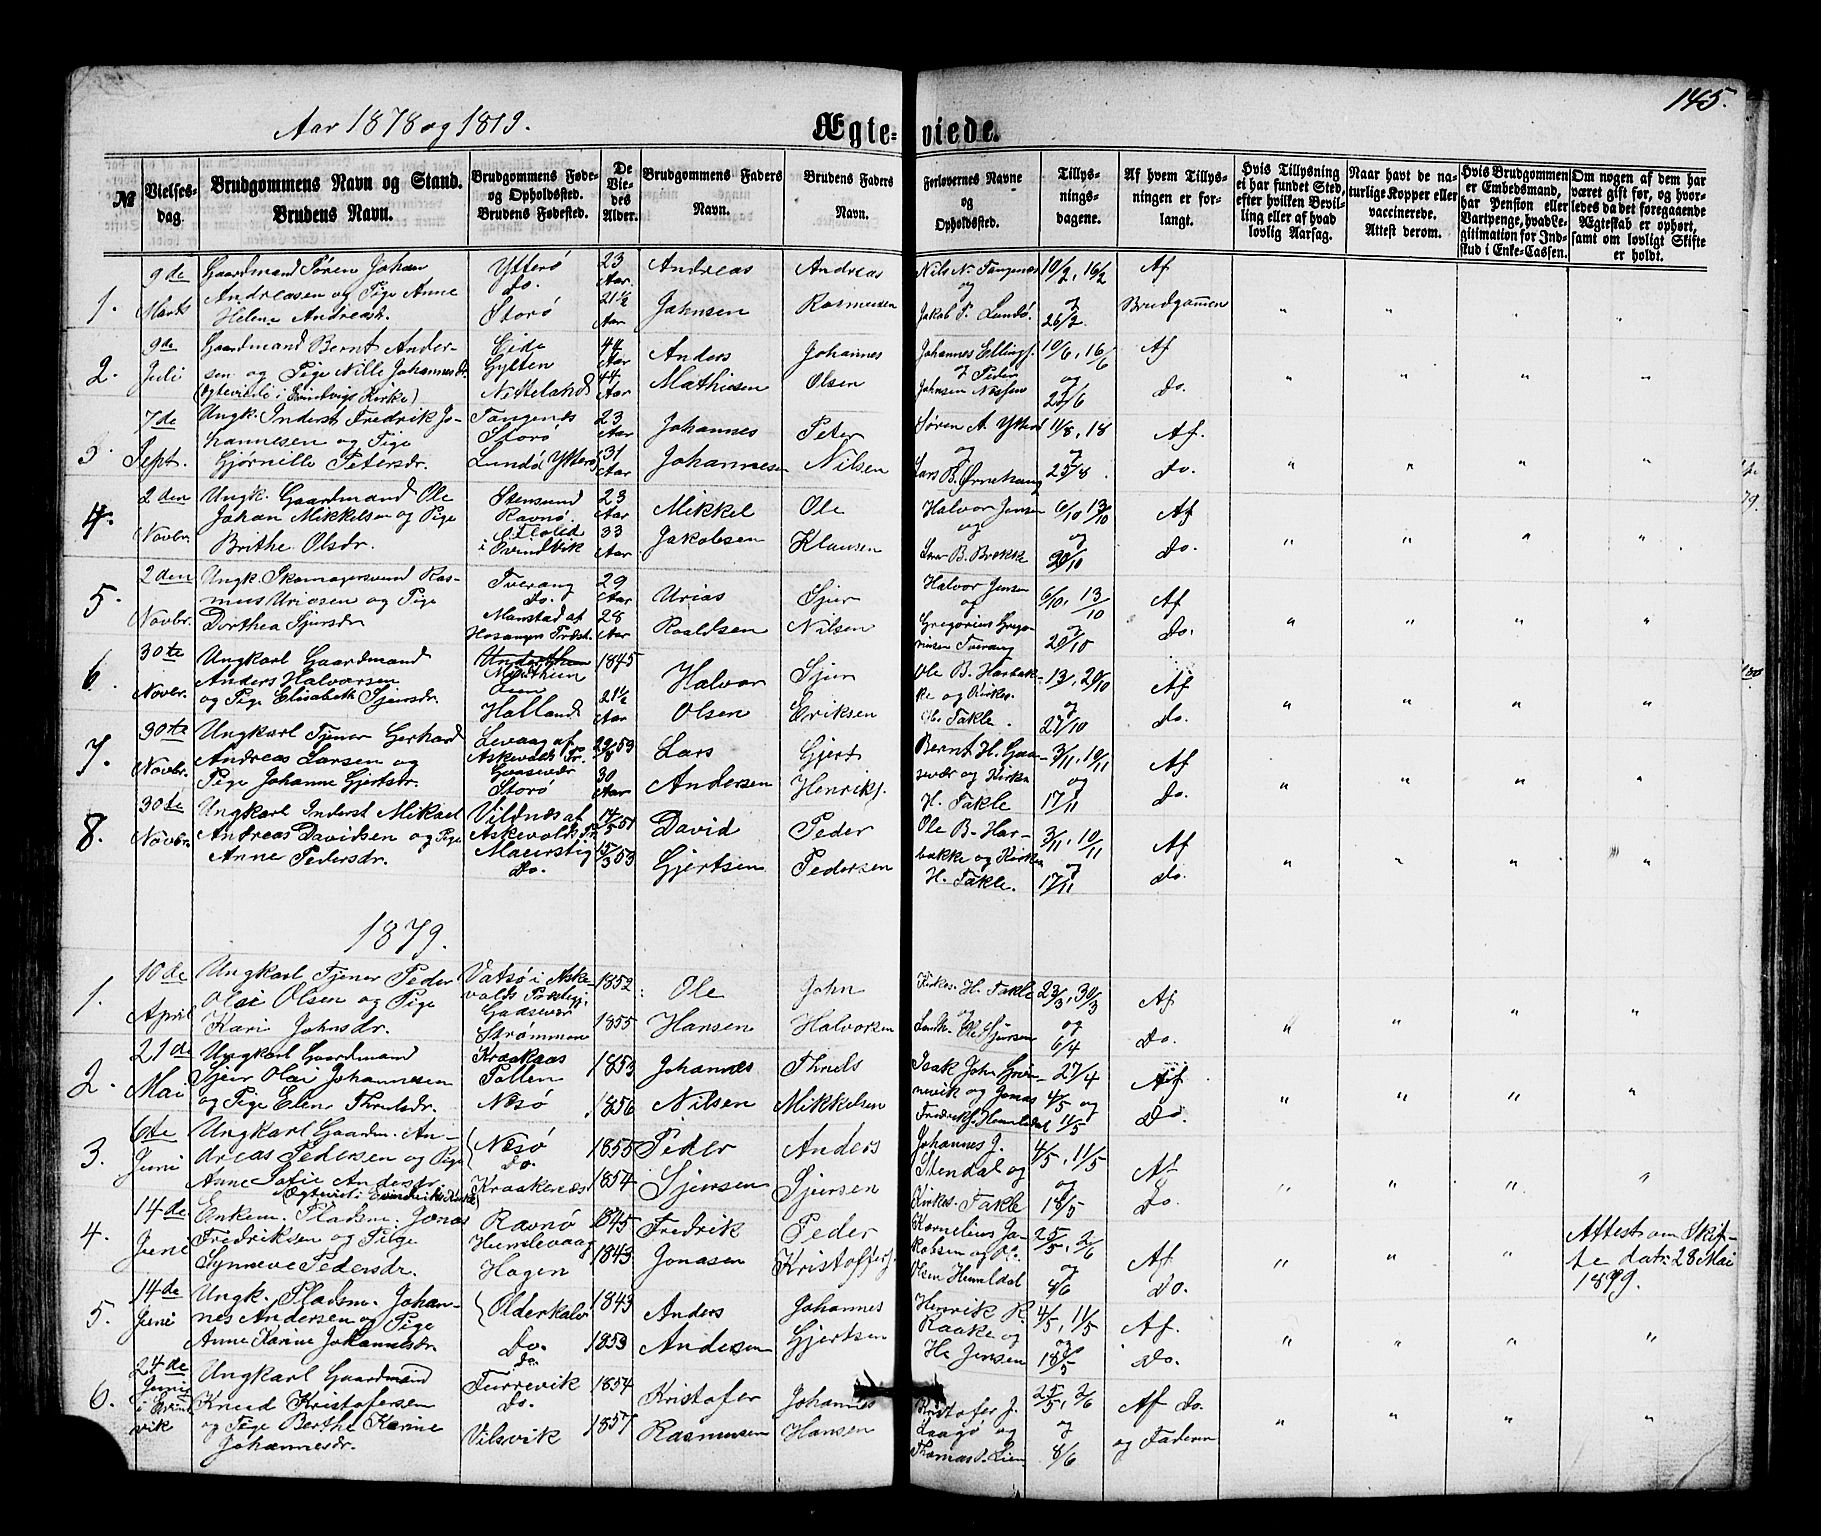 145.
Aar 1878 og 1879.
Ægte-viede.
№
Vielses-
dag.
Brudgommens Navn og Stand.
Brudens Navn.
Brudgommens Føde-
og Opholdssted.
Brudens Fødested.
De
Vie-
des
Alder.
Brudgommens Faders
Navn.
Brudens Faders
Navn.
Forlovernes Navne
og
Opholdssted.
Tillys-
nings-
dagene.
Af hvem Tillys-
ningen er for-
langt.
Hvis Tillysning
ei har fundet Sted,
efter hvilken Bevil-
ling eller af hvad
lovlig Aarsag.
Naar havt de na-
turlige Kopper eller
vaccinerede.
Attest derom.
Hvis Brudgommen
er Embedsmand,
har Pension eller
Vartpenge, hvad Le-
gitimation for Ind-
skud i Enke-Cassen.
Om nogen af dem har
været gift før, og hvor-
ledes da det foregaaende
Ægteskab er ophørt,
samt om lovligt Skifte
er holdt.
1.
9de
Marts
Gaardmand Søren Johan
Andreasen og Pige Anne
Helene Andreasdr.
Ytterø
Do.
Storø
23
Aar.
21 1/2
Aar
Andreas
Johnsen
Andreas
Rasmussen
Nils N. Tangenæs
og
Jakob P. Lundø.
10/2, 16/2
og
26/2
Af
Brudgommen
2.
9de
Juli
Gaardmand Bernt Ander-
sen og Pige Nille Johannesdr.
(Ægteviede i Evindvigs Kirke)
Eide
Gylten
Nitteland
44
Aar
44
Aar
Anders
Mathiesen
Johannes
Olsen
Johannes Ellings.
og Peder
Johnsen Næssen
10/6, 16/6
og
23/6
Af
Do.
3.
7de
Sept.
Ungk. Inderst Fredrik Jo-
hannesen og Pige
Gjørnille Petersdr.
Tangenæs
Storø
Lundø (Ytterø)
23
Aar
31
Aar
Johannes
Johannesen
Peter
Nilsen
Søren A. Ytterø
og
Lars B. Ørnehaug
11/8, 18
og
25/8
Af.
Do.
4.
2den
Novbr.
Ungk. Gaardmand Ole
Johan Mikkelsen og Pige
Brithe Olsdr.
Stensund
Ravnø.
Flolid
i Evindvik
23
Aar
33
Aar
Mikkel
Jakobsen
Ole
Klausen
Halvor Jensen
og
B. Brekke
6/10, 13/10
og
20/10
Af
Do.
5.
2den
Novbr.
Ungk. Skomagersvend Ras-
mus Uriasen og Pige
Dorthea Sjursdr.
Tverang
Do.
Manstad af
Hosanger Præst.
29
Aar
28
Aar
Urias
Roaldsen
Sjur
Nilsen
Halvor Jensen
og
Gregorius Grego-
riusen Tverang
6/10, 13/10
og
20/10
Af
Do.
6.
30te
Novbr.
Ungkarl Gaardmand
Anders Halvorsen
og Pige Elisabeth Sjursdr.
Lien
Halland
1845
21 1/2
Aar
Halvor
Olsen
Sjur
Eriksen
Ole B. Harbak-
ke og Kirkes.
H. Takle.
13, 20/10
og
27/10
Af
Do.
7.
30te
Novbr.
Ungkarl Tjener Gerhard
Andreas Larsen og
Pige Johanne Gjertsdr.
Levaag af
Askevolds Pr.
Gaasevær
Storø
29/8 53
30
Aar
Lars
Andersen
Gjert
Henriks.
Bernt H. Gaa-
sevær og Kirkes
H. Takle
3/11, 10/11
og
17/11
Af
Do.
8.
30te
Novbr.
Ungkarl Inderst Mikael
Andreas Davidsen og Pige
Anne Pedersdr.
Vilnæs af
Askevolds Pr.
Maerstig
Do.
14/5 51
15/3 53
David
Gjertsen
Peder
Pedersen
Ole B. Har-
bakke og Kirkes
H. Takle.
3/11, 10/11
og
17/11
Af
Do.
1879.
1.
10de
April
Ungkarl Tjener Peder
Olai Olsen og Pige
Kari Johnsdr.
Vatsø i Aske-
volds Præstegj.
Gaasevær
Strømmen
1852
1855
Ole
Hansen
John
Halvorsen
Kirkes. H. Takle
og
Ole Sjursen
23/3, 30/3
og
6/4
Af
Do.
2.
21de
Mai
Ungkarl Gaardmand
Sjur Olai Johannesen
og Pige Elen Thrulsdr.
Kraakaas
Pollen
Nesø
1853
1856
Johannes
Nilsen
Thruls
Mikkelsen
Isak John Grø-
nevik og Jonas
Fredriks. Humledal
27/4
4/5 og
11/5
Af
Do
3.
6te
Juni
Ungkarl Gaardm. An-
dreas Pedersen og Pige
Anne Sofie Andersdr.
(Ægteviet i Evindviks Kirke)
Nesø
Do.
Kraakenæs
1855
1854
Peder
Sjursen
Anders
Sjursen
Johannes J.
Stendal og
Kirkes. Takle
4/5, 11/5
og
18/5
Af
Do.
4.
14de
Juni
Enkem. Pladsm. Jonas
Fredriksen og Pige
Synneve Pedersdr.
Ravnø
Humlevaag
Hagen
1845
1843
Fredrik
Jonasen
Peder
Kristoffers.
Kornelius Ja-
kobsen og Ole
Olsen Humldal
25/5, 2/6
og
8/6
Af
Do.
Attest om Skif-
te dat. 28 Mai
1879.
5.
14de
Juni
Ungk. Pladsm. Johan-
nes Andersen og Pige
Anne Karine Johannesdr.
Olderkalv
Do.
Do.
1843
1853
Anders
Andersen
Johannes
Gjertsen
Henrik R.
Raake og
H. Jensen
4/5, 11/5
og
18/5
Af.
Do.
6.
24de
Juni
i Evind
vik
Ungkarl Gaardmand
Knud Kristofersen
og Pige Berthe Karine
Johannesdr.
Furrevik
Do.
Vilsvik
1854
1857
Kristofer
Rasmussen
Johannes
Hansen
Kristofer J.
Laagø og
Thomas P. Lien
25/5, 2/6
og
8/6
Af Do.
og Faderen